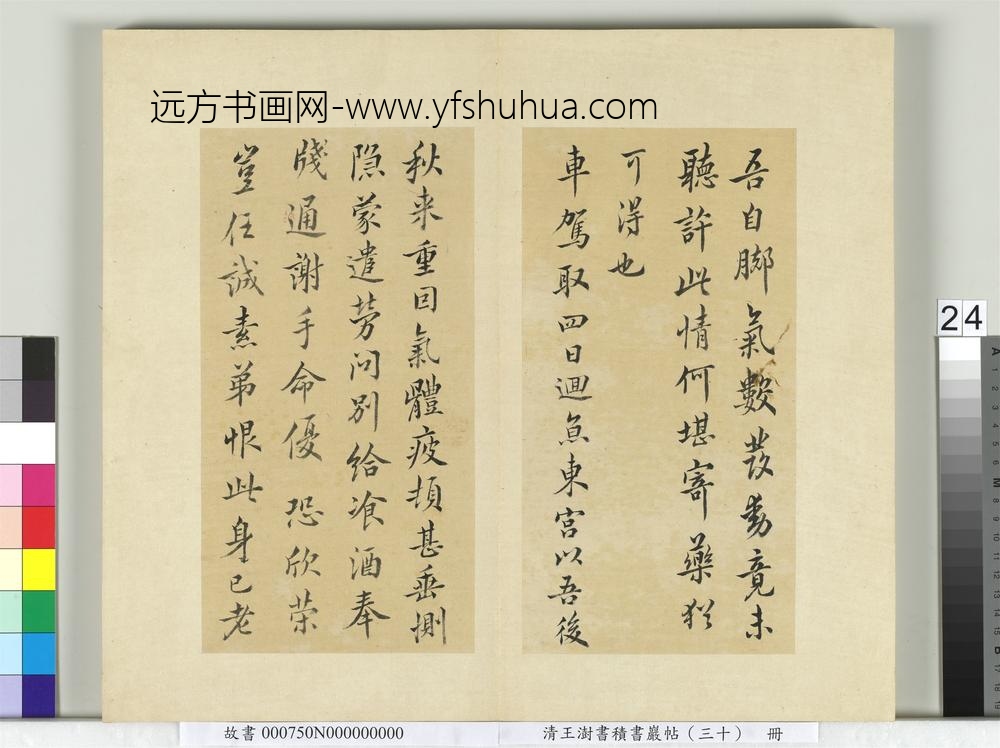 远方书画网-www.yfshuhua.com
吾自脚氣數發動竟未
聽許此情何堪寄藥猶
可得也
車駕取四日迴魚東宮以吾後
秋来重回氣體疲頓甚垂惻
隐蒙遣劳问别給飡酒奉
牋通謝手命優 恐欣荣
豈任誠素弟恨此身已老
24
故書 000750N000000000
清王澍書積書巖帖（三十） 冊